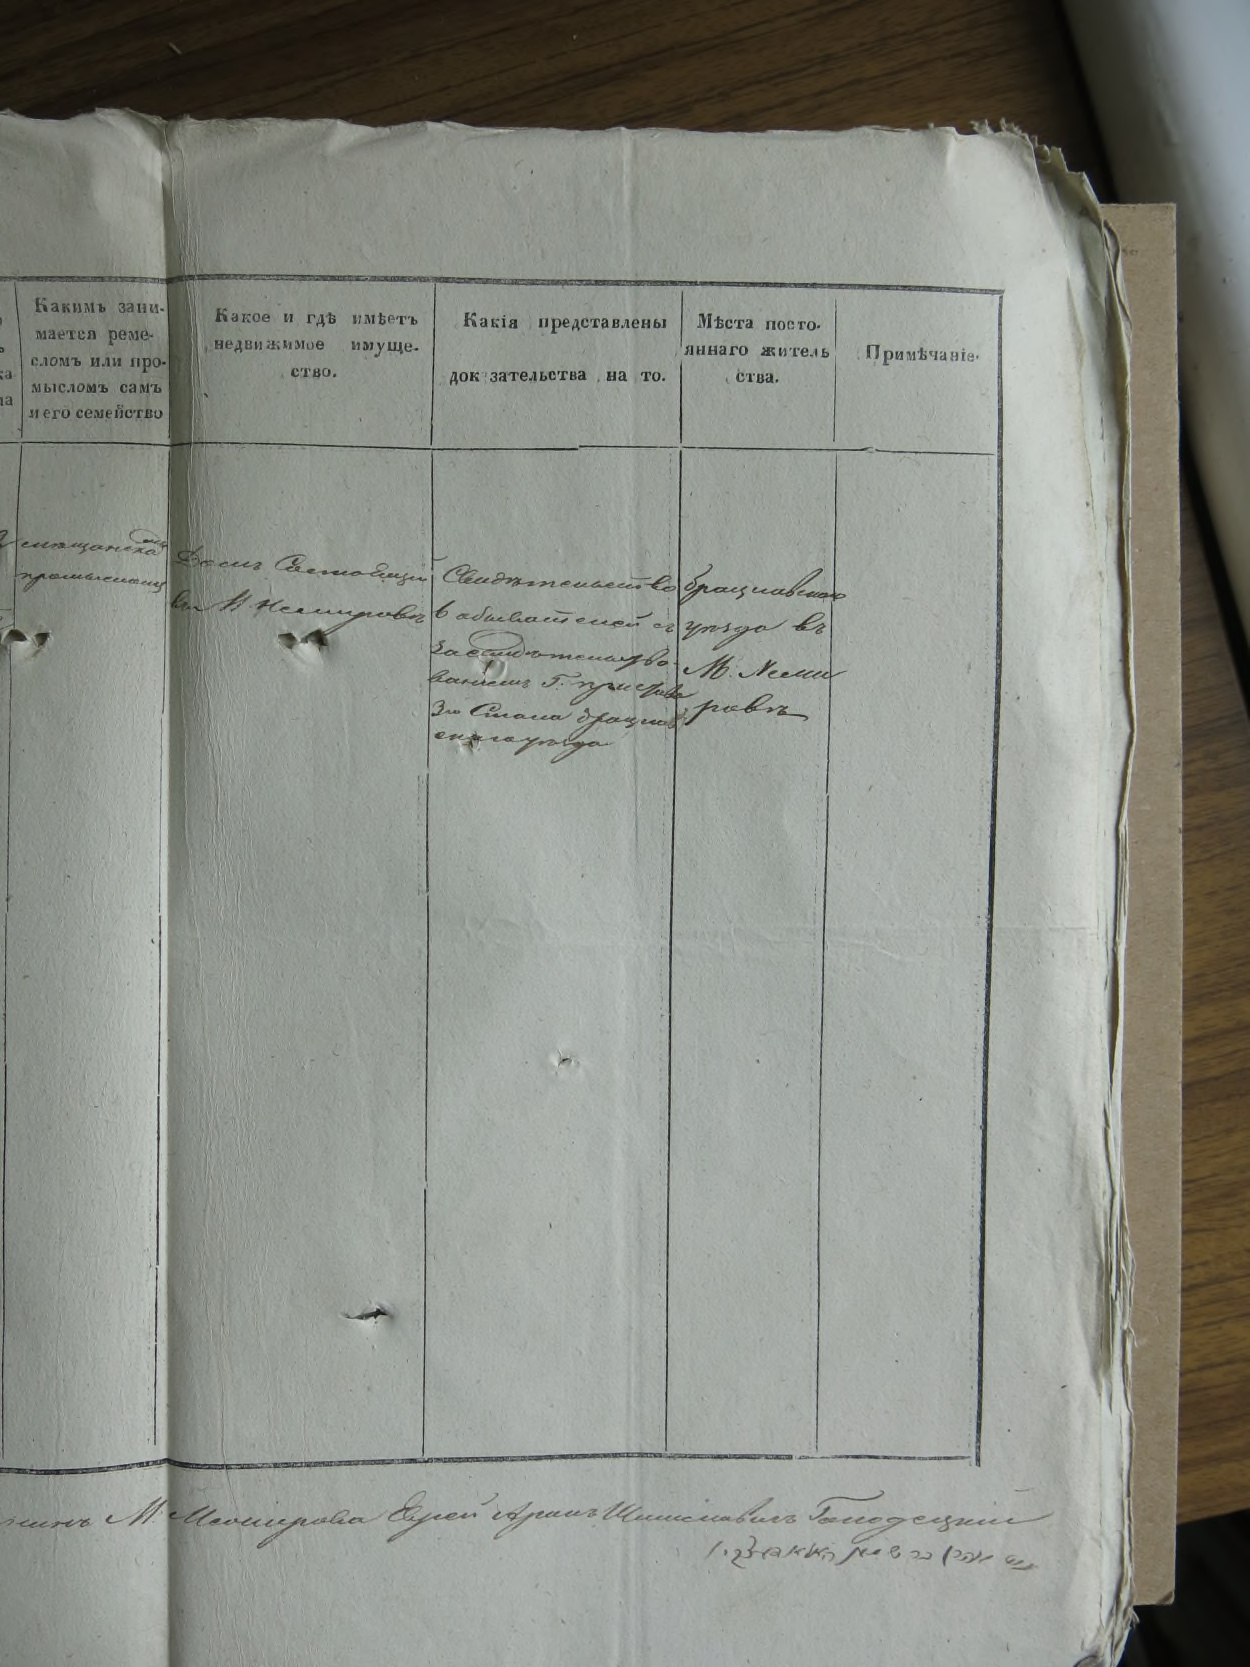 Какимъ зани-
мается реме-
сломъ или про-
мысломъ самъ
и его семейство
Какое и гдѣ имѣетъ
недвижимое имуще-
ство.
Какія представлены
док зательства на то.
Мѣста посто-
яннаго житель
ства.
Примѣчаніе.
мѣщанска
промысломъ
Домъ Состоящій
въ М Немировѣ
Свидѣтельство
6 обывателей съ
засвидѣтельство-
ваніемъ Г. пристава
3го Стана брацлав
скаго уѣзда
брацлавскаго
уѣзда въ
М. Неми
ровѣ
М. Немирова Еврей